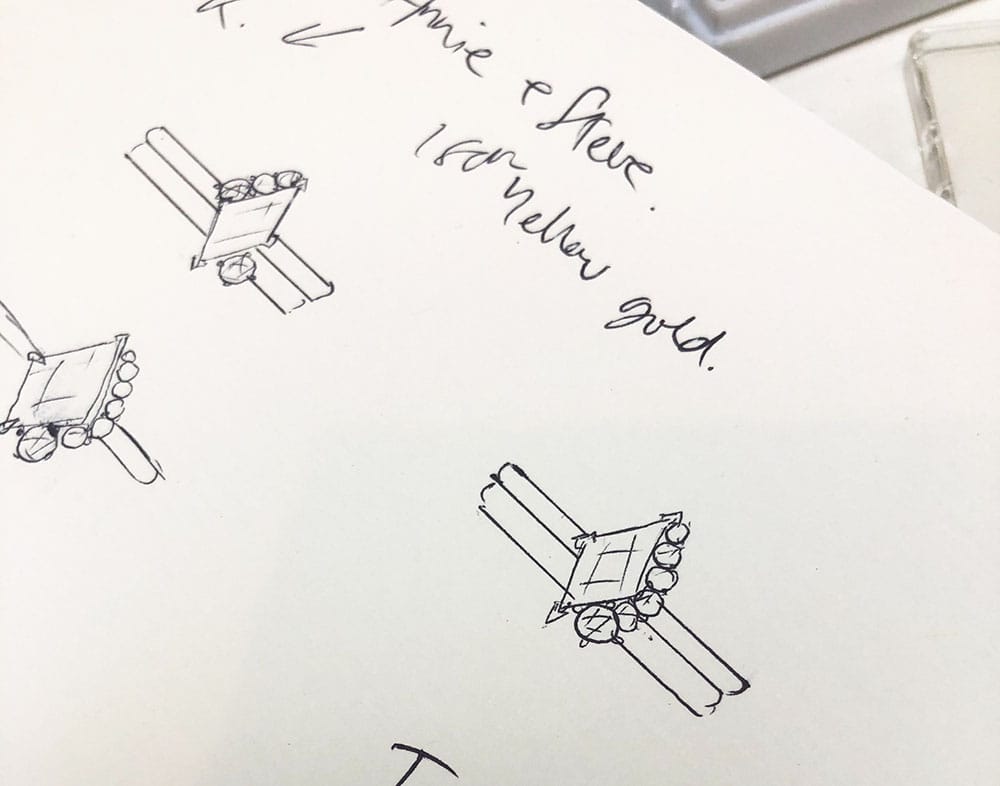 Annie + Steve.
18ct Yellow gold.